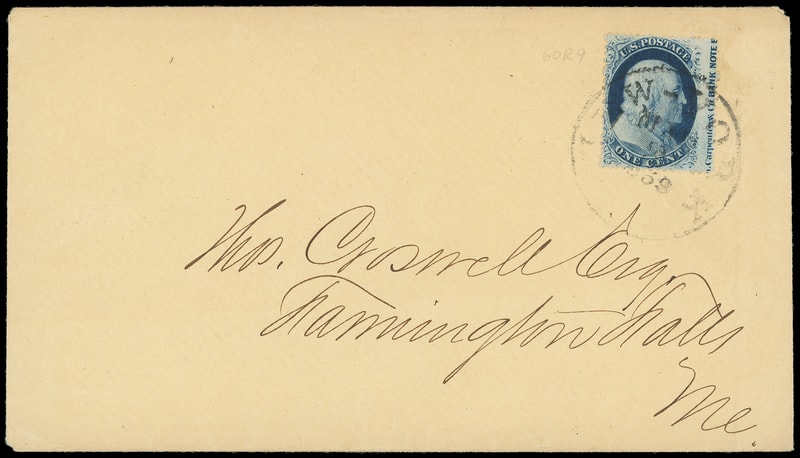 60R9
U.S. POSTAGE
ONE CENT
Carpenter & Co. BANK NOTE E
NEW YORK
1859
Thos. Croswell Esq.
Farmington Falls
Me.